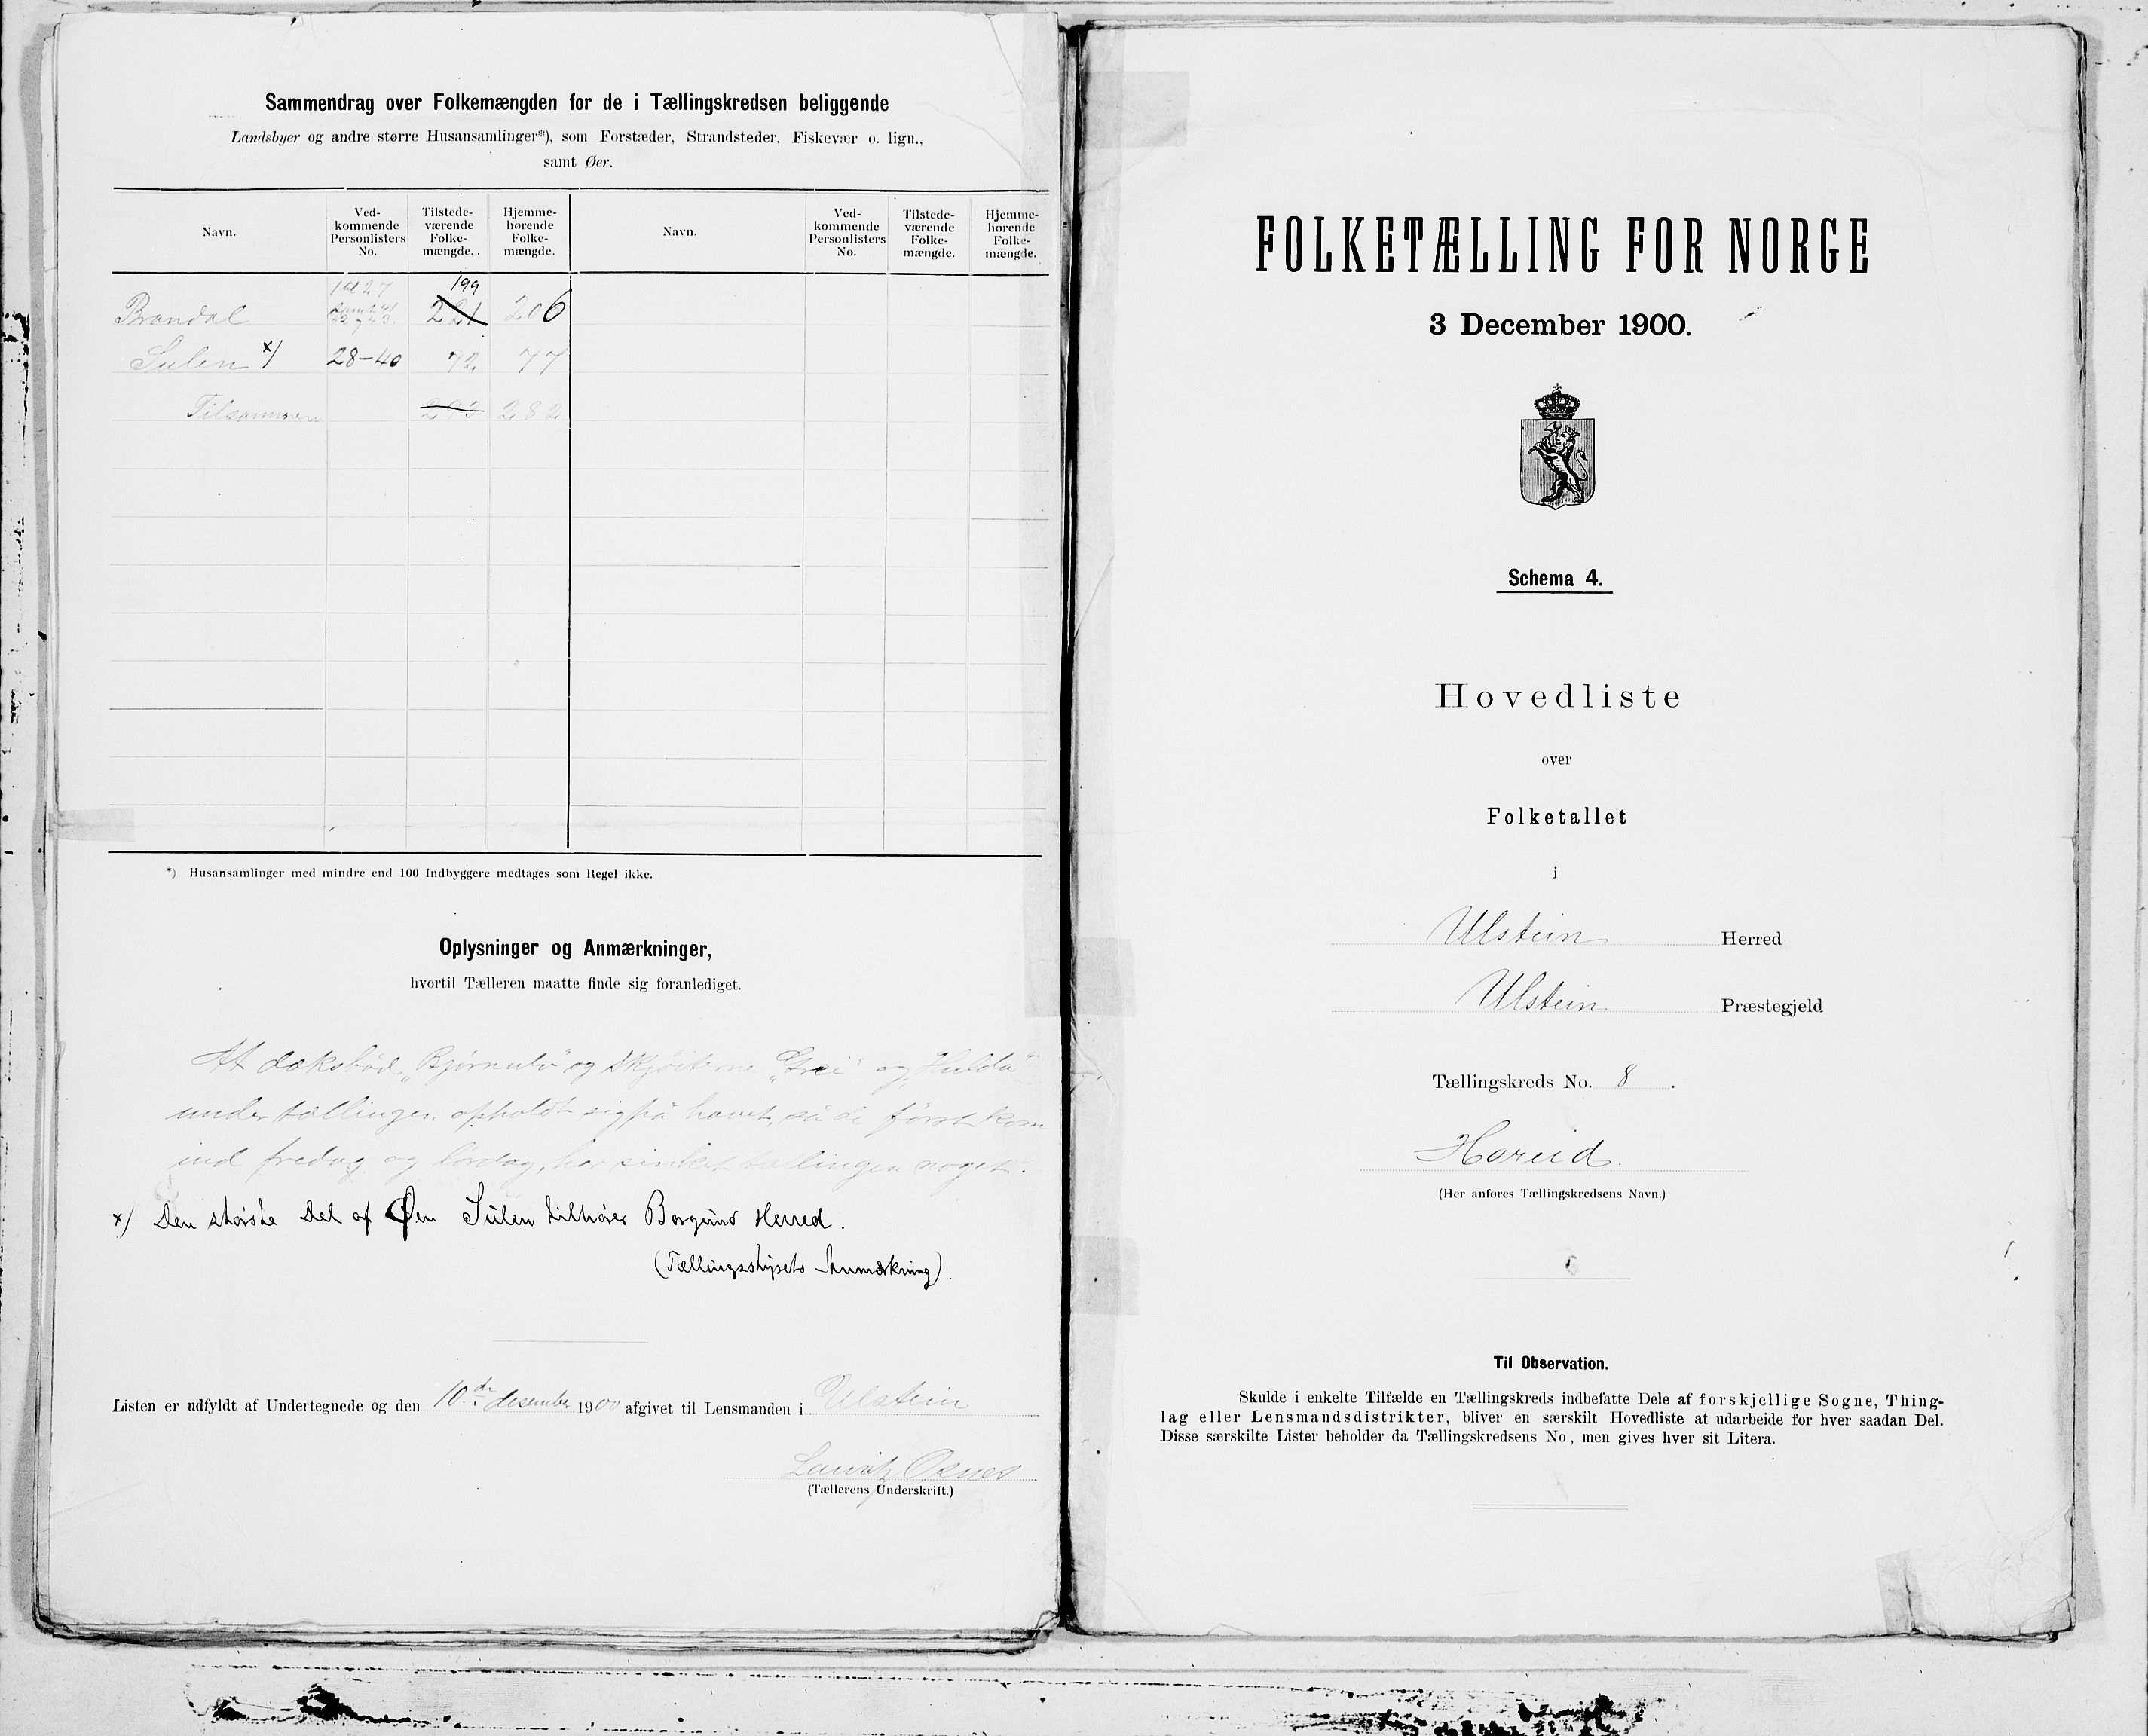 Sammendrag over Folkemængden for de i Tællingskredsen beliggende
Landsbyer og andre større Husansamlinger*), som Forstæder, Strandsteder, Fiskevær o. lign.,
samt Øer.
Navn.
Ved-
kommende
Personlisters
No.
Tilstede-
værende
Folke-
mængde.
Hjemme-
hørende
Folke-
mængde.
Navn.
Ved-
kommende
Personlisters
No.
Tilstede-
værende
Folke-
mængde.
Hjemme-
hørende
Folke-
mængde.
199
Brandal 1 til 27 221 206
Sulen x) 28-40 72 77
Tilsammen 293 282
*) Husansamlinger med mindre end 100 Indbyggere medtages som Regel ikke.
Oplysninger og Anmærkninger,
hvortil Tælleren maatte finde sig foranlediget.
At dæksbåd „Bjørnulv“ og Skjøiterne „Frei“ og „Hulda“
under tællingen opholdt sig på havet, så de først kom
ind fredag og lördag, har sinket tællingen noget.
x) Den största Del af Øen Sulen tilhører Borgund Herred.
(Tællingsstyrets Anmærkning).
Listen er udfyldt af Undertegnede og den 10de desember 1900 afgivet til Lensmanden i Ulstein
Lauritz Osnes
(Tællerens Underskrift.)
FOLKETÆLLING FOR NORGE
3 December 1900.
Schema 4.
Hovedliste
over
Folketallet
i
Ulstein Herred
Ulstein Præstegjeld
Tællingskreds No. 8.
Hareid.
(Her anføres Tællingskredsens Navn.)
Til Observation.
Skulde i enkelte Tilfælde en Tællingskreds indbefatte Dele af forskjellige Sogne, Thing-
lag eller Lensmandsdistrikter, bliver en særskilt Hovedliste at udarbeide for hver saadan Del.
Disse særskilte Lister beholder da Tællingskredsens No., men gives hver sit Litera.